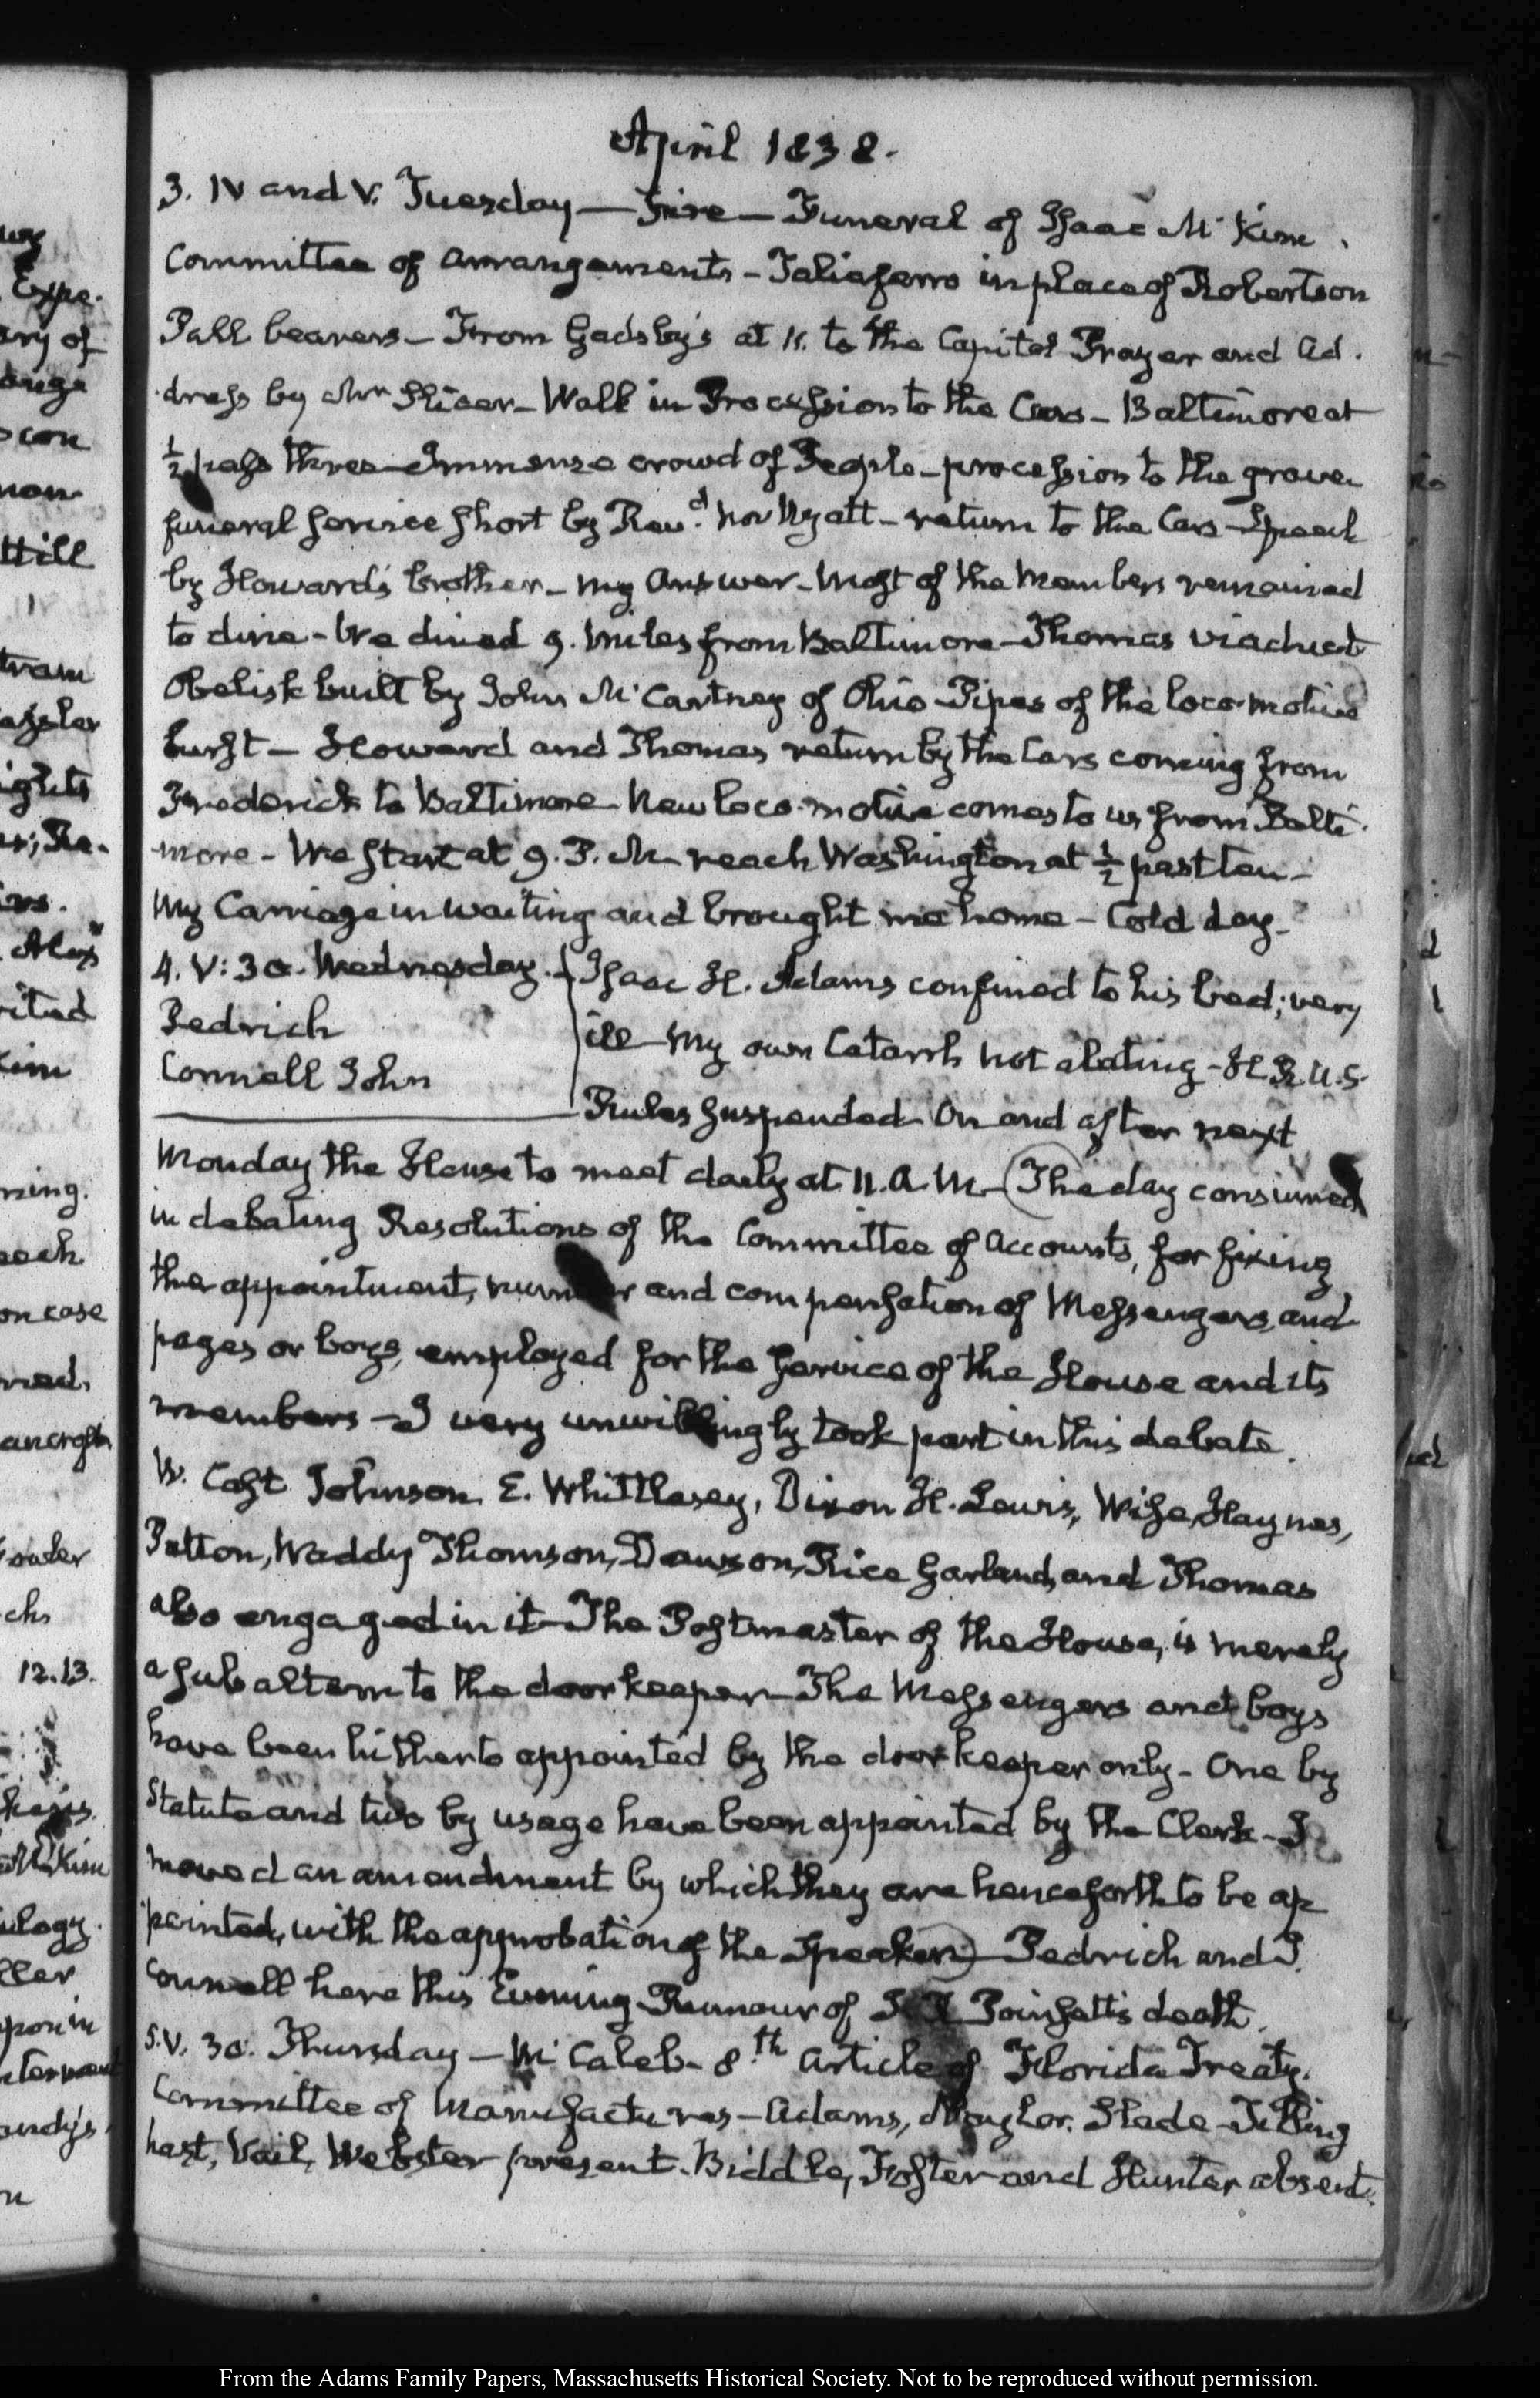 April 1838.
3. IV and V. Tuesday — Fire — Funeral of Isaac McKim.
Committee of arrangements – Taliaferro in place of Robertson
Pall bearers – From Gadsby's at 11. to the Capitol Prayer and Ad-
dress by Mr Slicer – Walk in Procession to the Cars – Baltimore at
½ past three – Immense crowd of People – procession to the grave.
funeral service short by Revd. Mr Wyatt – return to the Cars – Speech
by Howard's brother – my Answer – Most of the Members remained
to dine – We dined 9. miles from Baltimore – Thomas viaduct
Obelisk built by John McCartney of Ohio – Pipes of the loco-motive
burst – Howard and Thomas return by the Cars coming from
Frederick to Baltimore – New loco-motive comes to us from Balti-
more – We start at 9. P.M. reach Washington at ½ past ten –
My Carriage in waiting and brought me home – Cold day –
4. V: 30. Wednesday.
Pedrich
Connell John
Isaac H. Adams confined to his bed; very
ill – My own Catarrh not abating – H.R.U.S.
Rules suspended – On and after next
Monday the House to meet daily at 11. A.M. – (The day consumed
in debating Resolutions of the Committee of Accounts, for fixing
the appointment, number and compensation of Messengers, and
pages or boys, employed for the service of the House and its
members – I very unwillingly took part in this debate.
W. Cost Johnson, E. Whittlesey, Dixon H. Lewis, Wise, Haynes,
Patton, Waddy Thomson, Dawson, Rice Garland, and Thomas
also engaged in it – The Postmaster of the House, is merely
a subaltern to the doorkeeper – The Messengers and boys
have been hitherto appointed by the doorkeeper only – One by
Statute and two by usage have been appointed by the Clerk – I
moved an amendment by which they are henceforth to be ap
pointed, with the approbation of the Speaker) – Pedrich and J.
Connell here this Evening – Rumour of J R Poinsett's death.
5. V. 30. Thursday – McCaleb – 8th Article of Florida Treaty.
Committee of Manufactures – Adams, Naylor, Slade – Tilling
hast, Vail, Webster present. Biddle, Foster and Hunter absent.
From the Adams Family Papers, Massachusetts Historical Society. Not to be reproduced without permission.